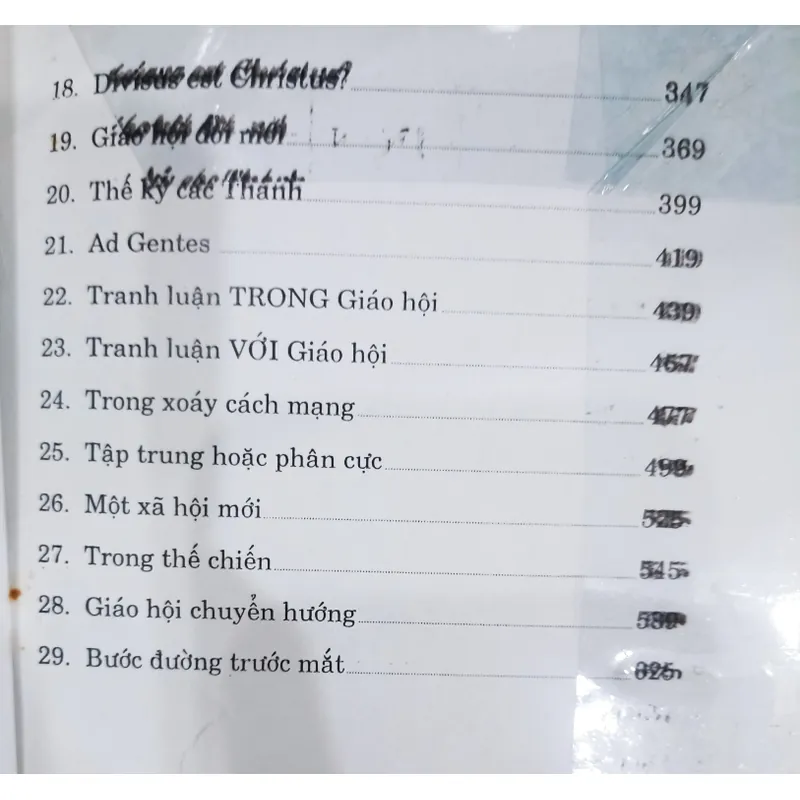 18. Divisus est Christus? 347
19. Giáo hội đổi mới 369
20. Thế kỷ các Thánh 399
21. Ad Gentes 419
22. Tranh luận TRONG Giáo hội 439
23. Tranh luận VỚI Giáo hội 457
24. Trong xoáy cách mạng 477
25. Tập trung hoặc phân cực
26. Một xã hội mới
27. Trong thế chiến 545
28. Giáo hội chuyển hướng
29. Bước đường trước mắt